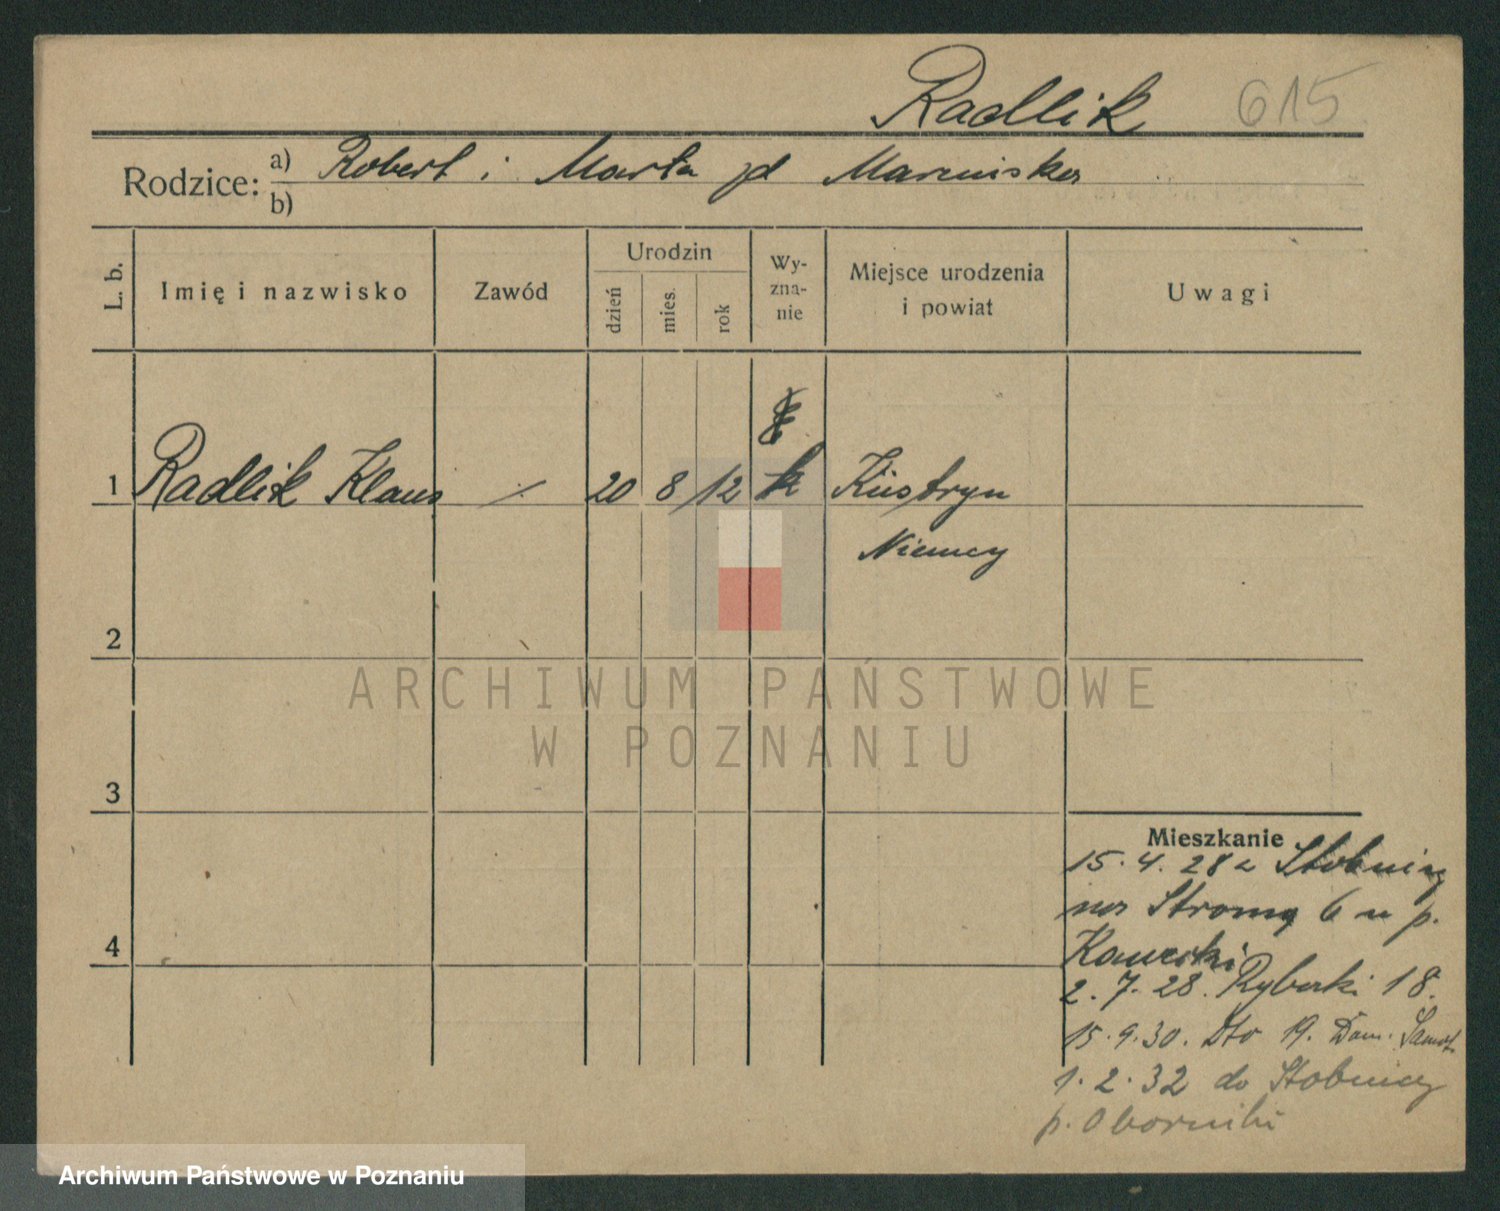 Radlik 615
Rodzice: a) Robert i Marta zd
b)
L. b.
Imię i nazwisko
Zawód
Urodzin
dzień
mies.
rok
Wy-
zna-
nie
Miejsce urodzenia
i powiat
Uwagi
1 Radlik Klaus 20 8 12 k Küstryn
Niemcy
2
3
4
Mieszkanie
15.4.28 z Stobnicy
na Stromą 6 u p.
2.7.28. Rybaki 18.
15.9.30. Dto 19.
1.2.32 do Stobnicy
p. Oborniki
ARCHIWUM PAŃSTWOWE
W POZNANIU
Archiwum Państwowe w Poznaniu